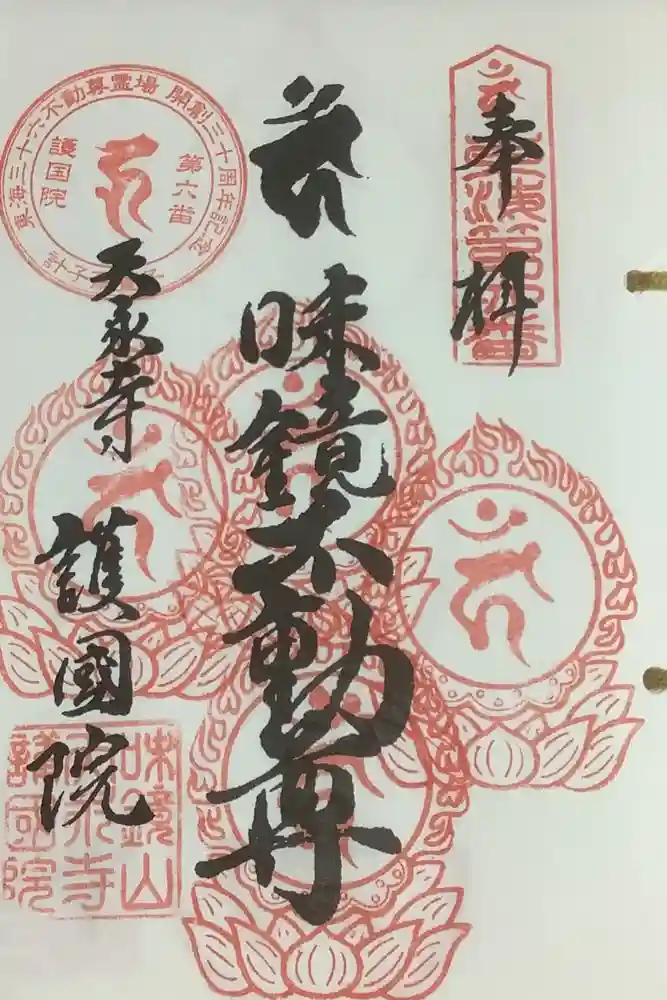 奉拝
東海第六番
味鏡不動尊
東海三十六不動尊霊場 開創三十周年記念
第六番
護国院
天永寺
護國院
味鏡山
天永寺
護國院